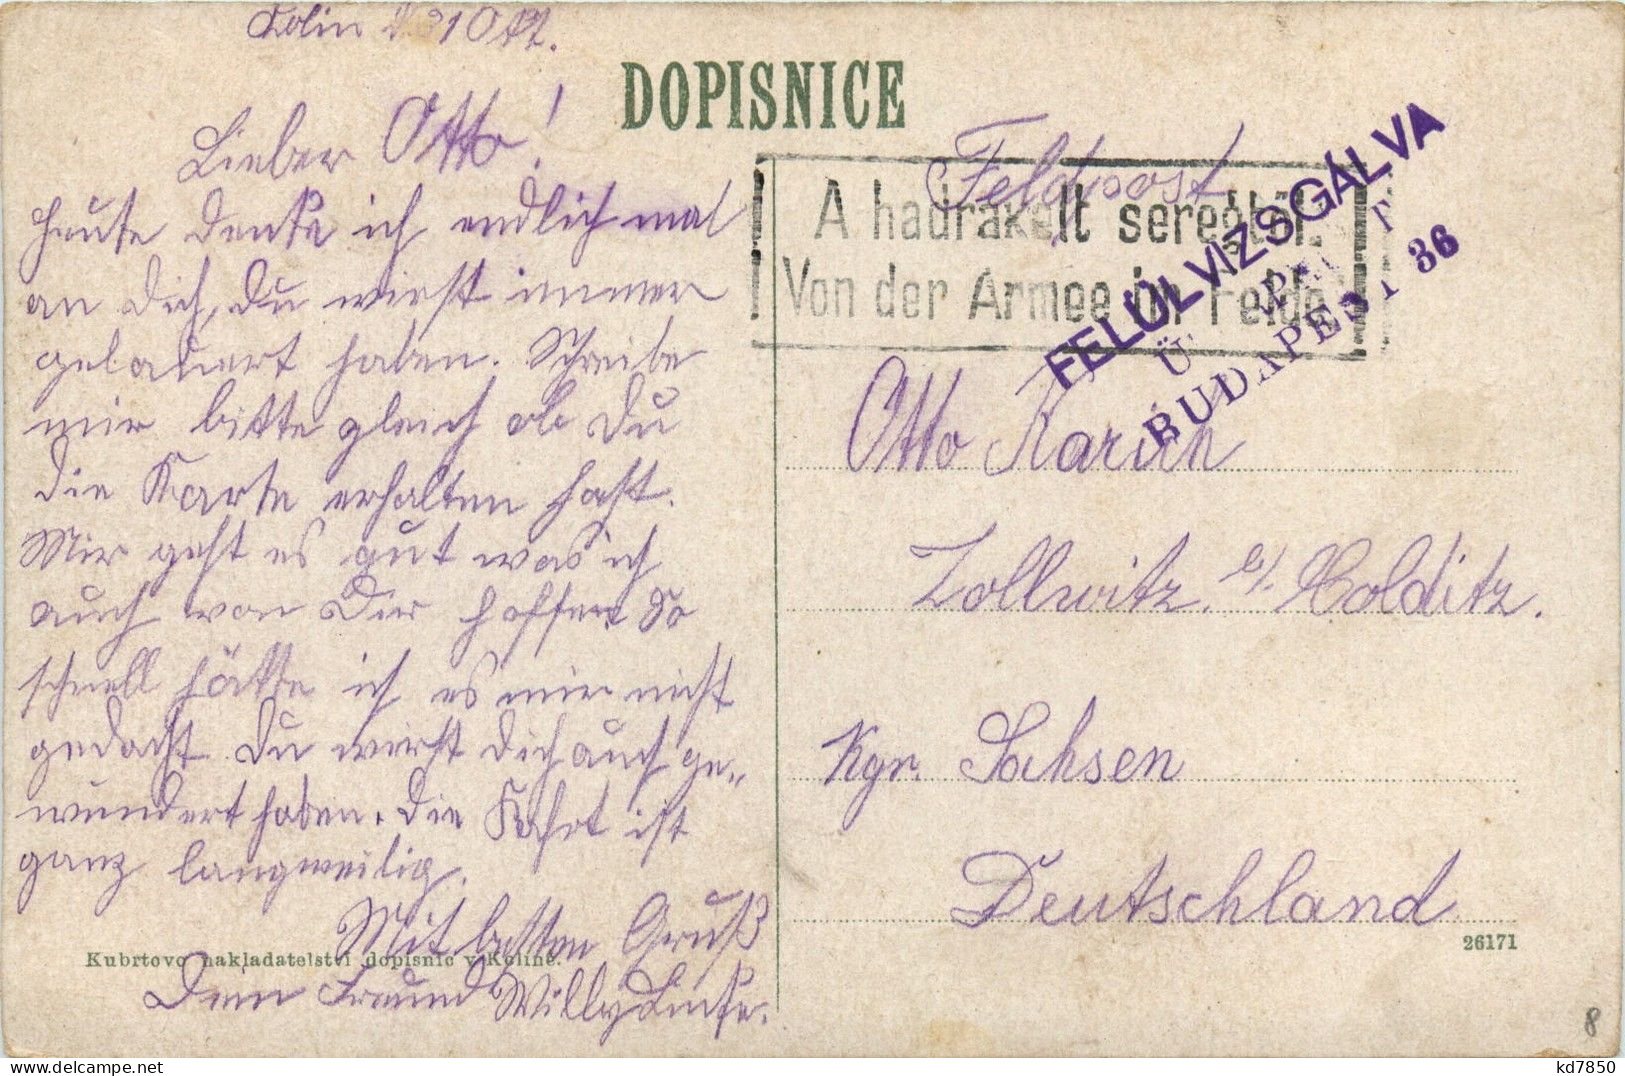 Kolin d. 31 Okt.
DOPISNICE
Lieber Otto!
Heute denke ich endlich mal
an Dich, Du wirst immer
gelauert haben. Schreibe
mir bitte gleich ob Du
die Karte erhalten hast.
Mir geht es gut was ich
auch von Dir hoffe. So
schnell hätte ich es mir nicht
gedacht. Du wirst Dich auch ge-
wundert haben. Die Fahrt ist
ganz langweilig.
Mit besten Gruß
Dein Freund Willy
Kubrtovo nakladatelství dopisnic v Kolíně.
Feldpost
A hadrakelt seregtől.
Von der Armee im Felde.
FELÜLVIZSGÁLVA
BUDAPEST 36
Otto
Zollwitz b/. Colditz.
Kgr. Sachsen
Deutschland
26171
8
kd7850